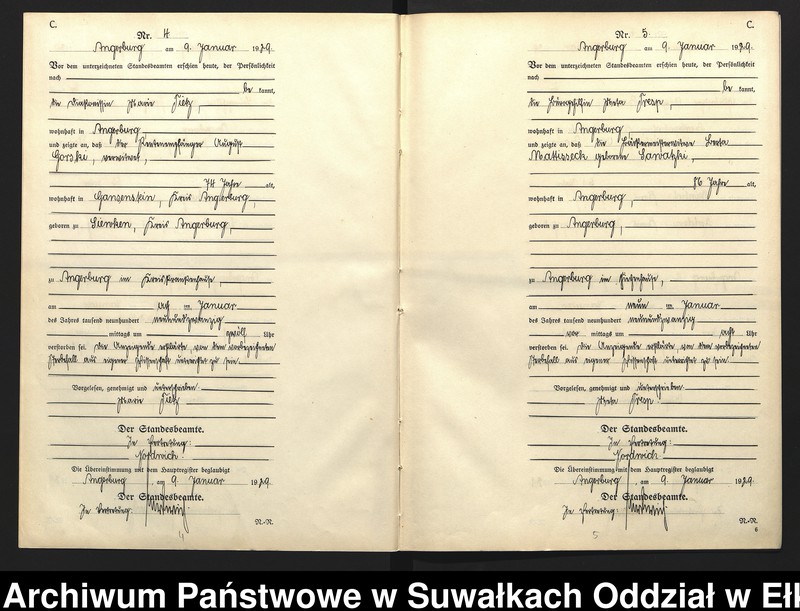 C.
Nr. 4
Angerburg am 9. Januar 1929.
Vor dem unterzeichneten Standesbeamten erschien heute, der Persönlichkeit
nach
be kannt,
die Diakonissin Marie Tietz,
wohnhaft in Angerburg,
und zeigte an, daß der Rentenempfänger August
Gorski, verwitwet,
74 Jahre alt,
wohnhaft in Gansenstein, Kreis Angerburg,
geboren zu Siewken, Kreis Angerburg,
zu Angerburg im Kreiskrankenhause,
am acht ten Januar
des Jahres tausend neunhundert neunundzwanzig
mittags um zwölf Uhr
verstorben sei. Die Anzeigende erklärte, von dem vorbezeichneten
Sterbefall aus eigener Wissenschaft unterrichtet zu sein.
Vorgelesen, genehmigt und unterschrieben
Marie Tietz.
Der Standesbeamte.
In Vertretung:
Nordwich.
Die Übereinstimmung mit dem Hauptregister beglaubigt
Angerburg am 9. Januar 1929.
Der Standesbeamte.
In Vertretung:
N.-N
4
C.
Nr. 5
Angerburg am 9. Januar 1929.
Vor dem unterzeichneten Standesbeamten erschien heute, der Persönlichkeit
nach
be kannt,
die Meta Tresp,
wohnhaft in Angerburg,
und zeigte an, daß die Bäckermeisterwitwe Berta
Mattisseck geborene Sawatzki,
86 Jahre alt,
wohnhaft in Angerburg,
geboren zu Angerburg,
zu Angerburg im Siechenhause,
am neun ten Januar
des Jahres tausend neunhundert neunundzwanzig
vor mittags um acht Uhr
verstorben sei. Die Anzeigende erklärte, von dem vorbezeichneten
Sterbefall aus eigener Wissenschaft unterrichtet zu sein.
Vorgelesen, genehmigt und unterschrieben
Meta Tresp.
Der Standesbeamte.
In Vertretung:
Nordwich.
Die Übereinstimmung mit dem Hauptregister beglaubigt
Angerburg, am 9. Januar 1929.
Der Standesbeamte.
In Vertretung:
N.-N
6
5
Archiwum Państwowe w Suwałkach Oddział w Eł